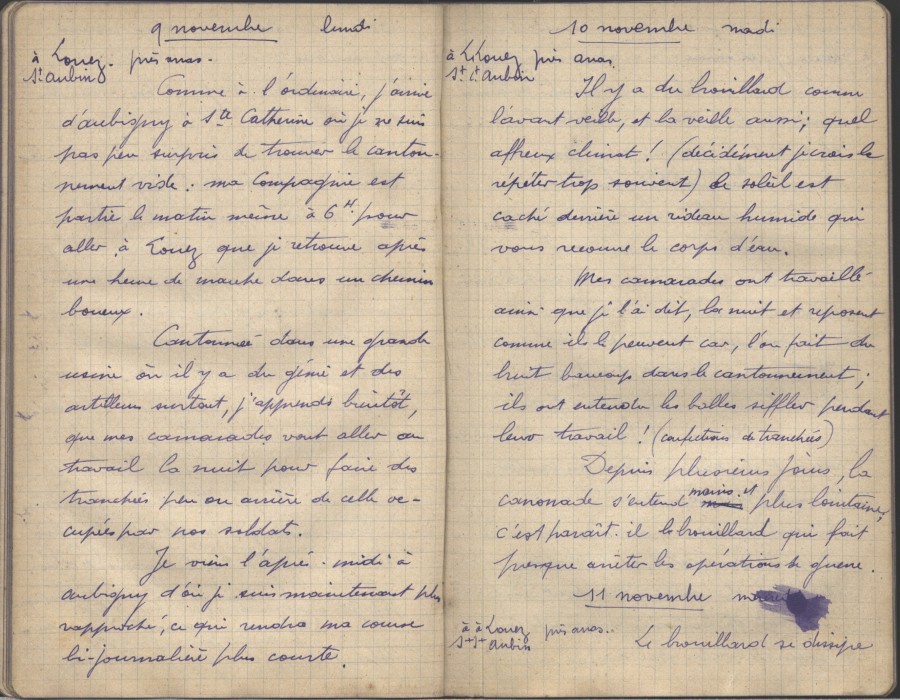 9 novembre lundi
à Louez. près arras.
St Aubin
Comme à l'ordinaire, j'arrive
d'aubigny à Ste Catherine où je ne suis
pas peu surpris de trouver le canton-
nement vide : ma Compagnie est
partie le matin même à 6H pour
aller à Louez que je retrouve après
une heure de marche dans un chemin
boueux.
Cantonné dans une grande
usine où il y a du génie et des
artilleurs surtout, j'apprends bientôt,
que mes camarades vont aller au
travail la nuit pour faire des
tranchées peu en arrière de celle oc-
cupées par nos soldats.
Je viens l'après-midi à
aubigny d'où je suis maintenant plus
rapproché, ce qui rendra ma course
bi-journalière plus courte.
10 novembre mardi
à Louez près arras
St Aubin
Il y a du brouillard comme
l'avant veille, et la veille aussi; quel
affreux climat ! (décidément je crois le
répéter trop souvent) le soleil est
caché derrière un rideau humide qui
vous recouvre le corps d'eau.
Mes camarades ont travaillé
ainsi que je l'ai dit, la nuit et reposent
comme ils le peuvent car, l'on fait du
bruit beaucoup dans le cantonnement;
ils ont entendu les balles siffler pendant
leur travail ! (confections de tranchées)
Depuis plusieurs jours, la
canonade s'entend moins et plus lointaine,
c'est paraît-il le brouillard qui fait
presque arrêter les opérations de guerre.
11 novembre
à Louez près arras..
St Aubin
Le brouillard se dissipe